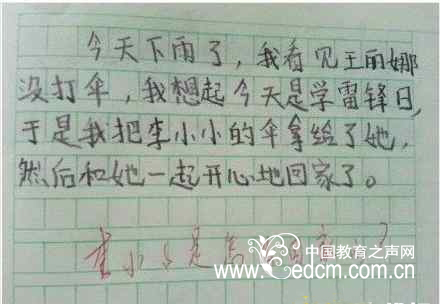 今天下雨了，我看见王丽娜
没打伞，我想起今天是学雷锋日，
于是我把李小小的伞拿给了她，
然后和她一起开心地回家了。
李小小是怎 回家 ？
中国教育之声网
www.edcm.com.cn